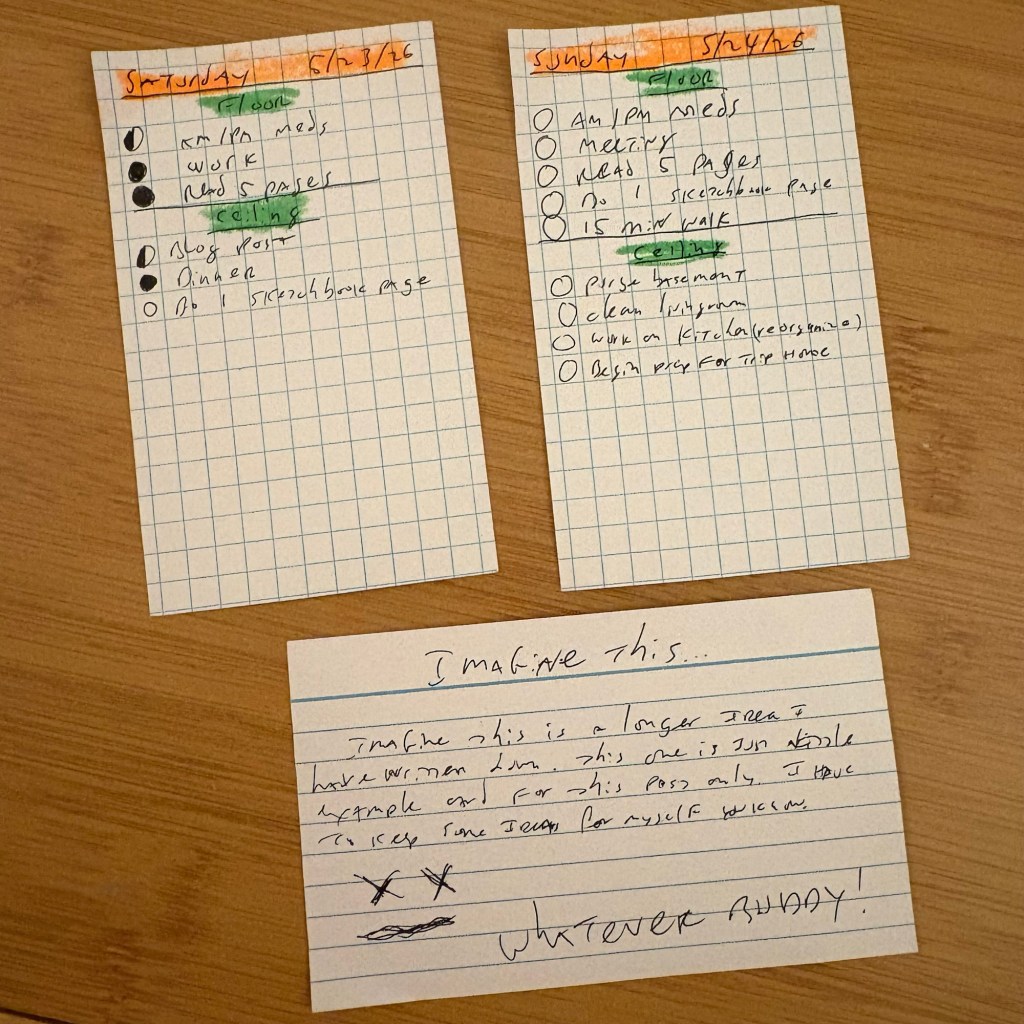 SATURDAY 5/23/26
Floor
AM/PM meds
work
Read 5 pages
Ceiling
Blog Post
Dinner
Do 1 sketchbook page
SUNDAY 5/24/26
Floor
AM/PM meds
Meeting
Read 5 pages
Do 1 sketchbook page
15 min walk
Ceiling
Purge basement
clean livingroom
work on kitchen (reorganize)
Begin prep for trip home
Imagine this...
Imagine this is a longer idea I
have written down. This one is just
example and for this post only. I have
to keep some ideas for myself
WHATEVER BUDDY!